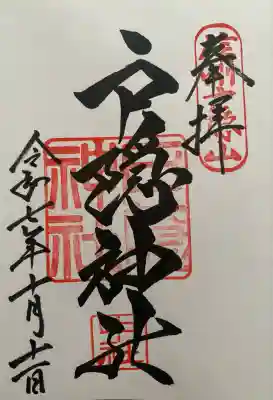 奉拝
戸隠神社
令和七年十月十一日